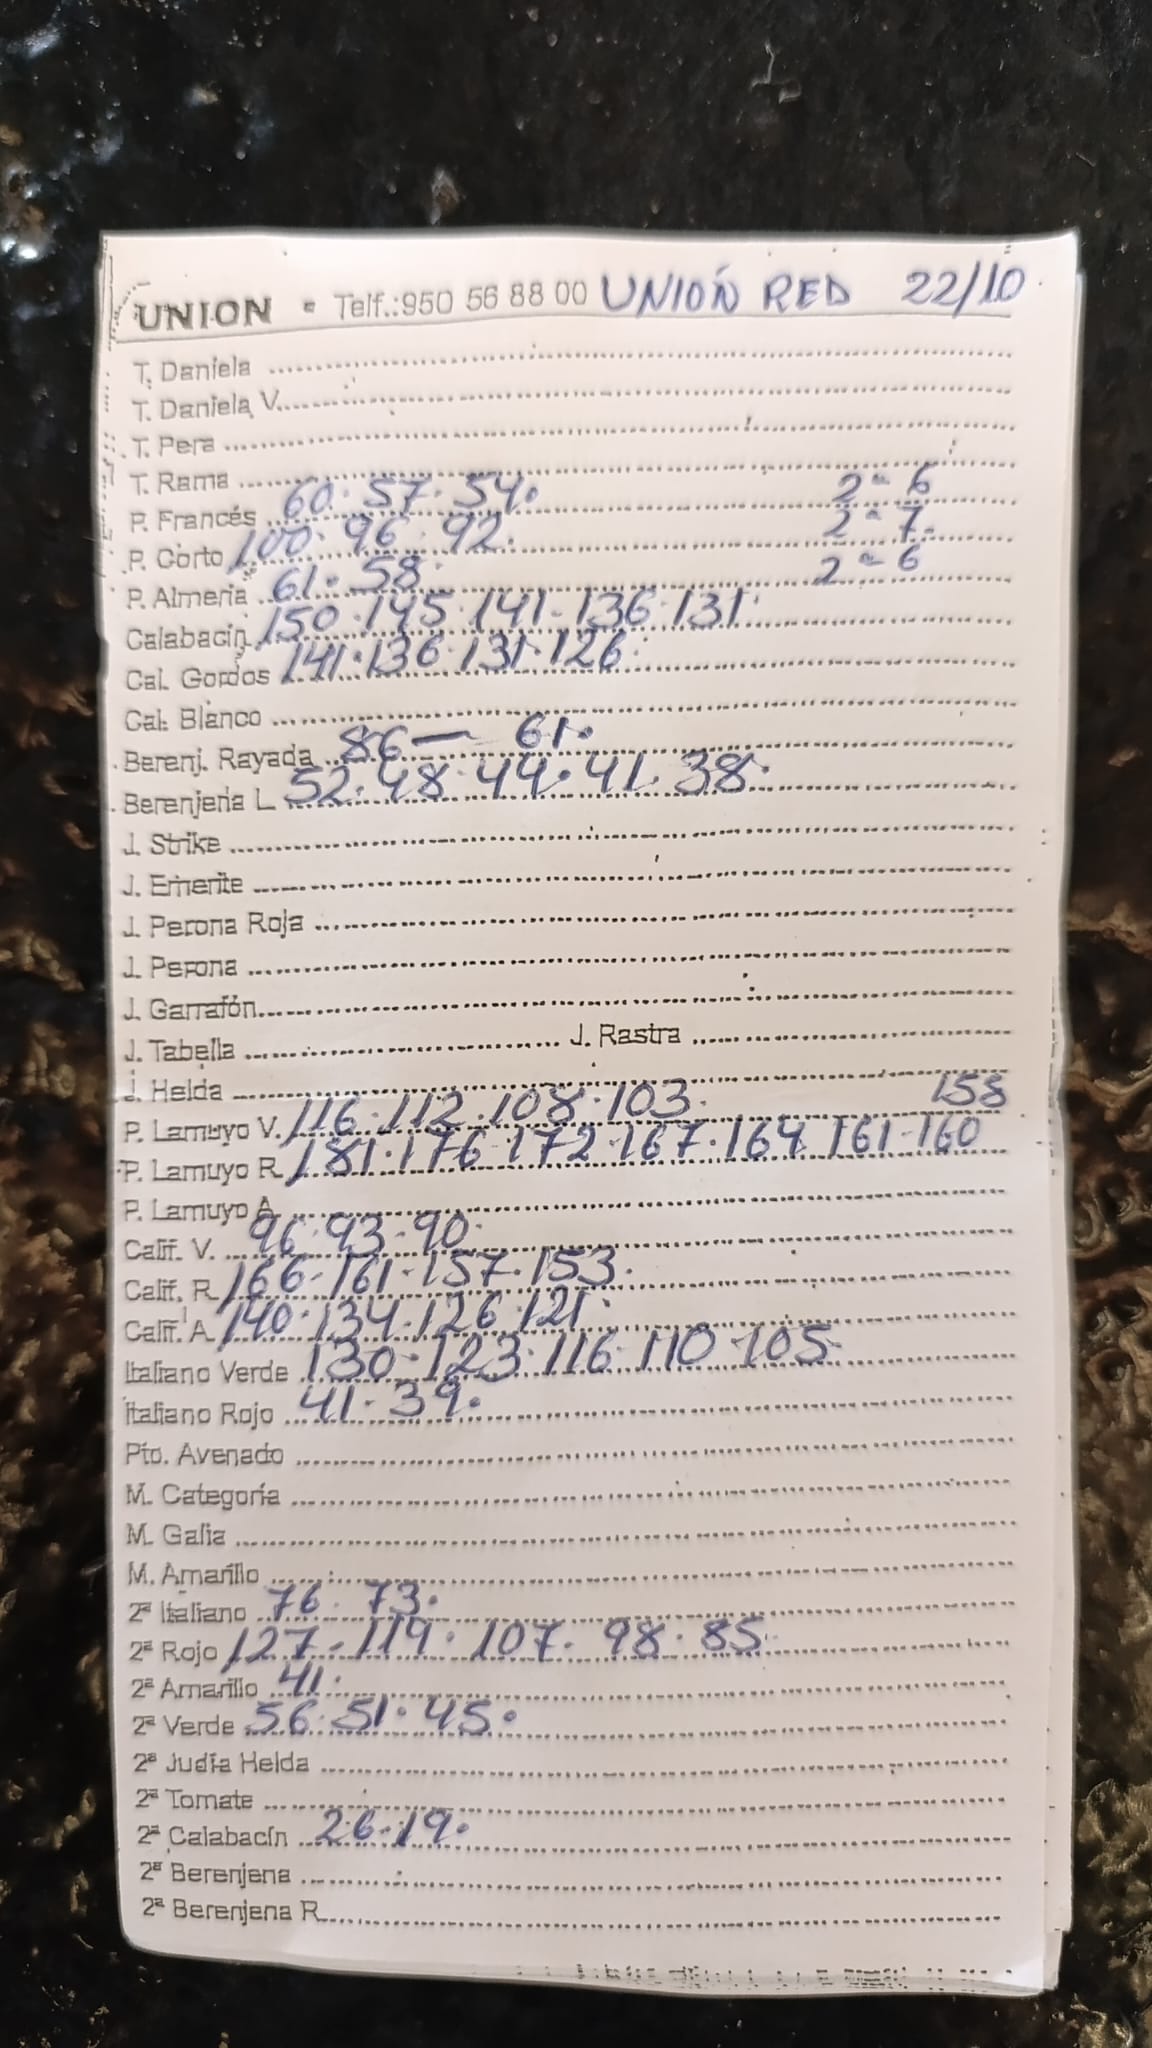 UNION - Telf.:950 56 88 00 UNIÓN RED 22/10
T. Daniela
T. Daniela V.
T. Pera
T. Rama
P. Francés 60. 57. 54. 2ª 6
P. Corto 100. 96. 92. 2ª 7.
P. Almería 61. 58. 2ª 6
Calabacín 150. 145. 141. 136. 131.
Cal. Gordos 141. 136. 131. 126.
Cal. Blanco
Berenj. Rayada 86 — 61.
Berenjena L 52. 48. 44. 41. 38.
J. Strike
J. Emerite
J. Perona Roja
J. Perona
J. Garrafón
J. Tabella J. Rastra
J. Helda
P. Lamuyo V. 116. 112. 108. 103. 158
P. Lamuyo R. 181. 176. 172. 167. 164 161. 160
P. Lamuyo A.
Calif. V. 96. 93. 90.
Calif. R. 166. 161. 157. 153.
Calif. A. 140. 134. 126. 121.
Italiano Verde 130. 123. 116. 110. 105.
Italiano Rojo 41. 39.
Pto. Avenado
M. Categoría
M. Galia
M. Amarillo
2ª Italiano 76. 73.
2ª Rojo 127. 119. 107. 98. 85.
2ª Amarillo 41.
2ª Verde 56. 51. 45.
2ª Judía Helda
2ª Tomate
2ª Calabacín 26. 19.
2ª Berenjena
2ª Berenjena R.